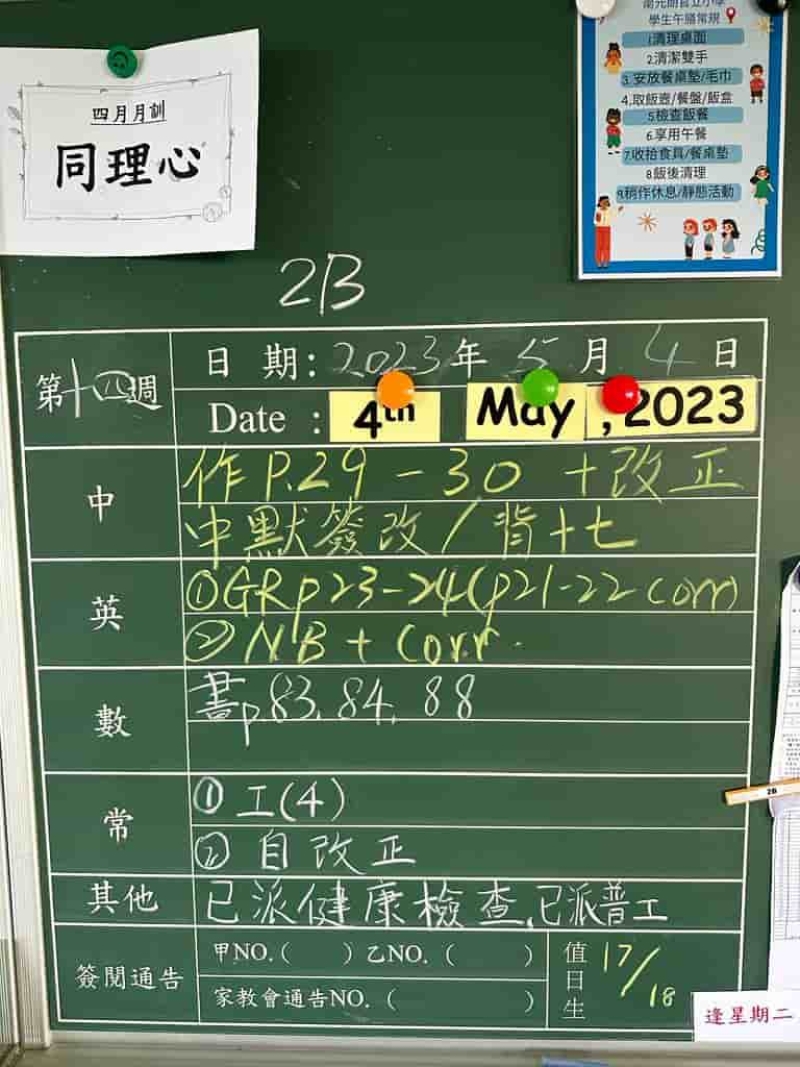 四月月訓
同理心
南元朗官立小學
學生午膳常規
1.清理桌面
2.清潔雙手
3.安放餐桌墊/毛巾
4.取飯壺/餐盤/飯盒
5.檢查飯餐
6.享用午餐
7.收拾食具/餐桌墊
8.飯後清理
9.稍作休息/靜態活動
2B
第十四週
日 期：2023年 5 月 4 日
Date : 4th May , 2023
中
作P.29-30 +改正
中默簽改/背十七
英
①GRp23-24(p21-22 corr)
②NB + Corr.
數
書p83, 84, 88
常
①工(4)
②自改正
其他
已派健康檢查,已派普工
簽閱通告
甲NO.( ) 乙NO. ( )
家教會通告NO. ( )
值日生
17/18
2B
逢星期二